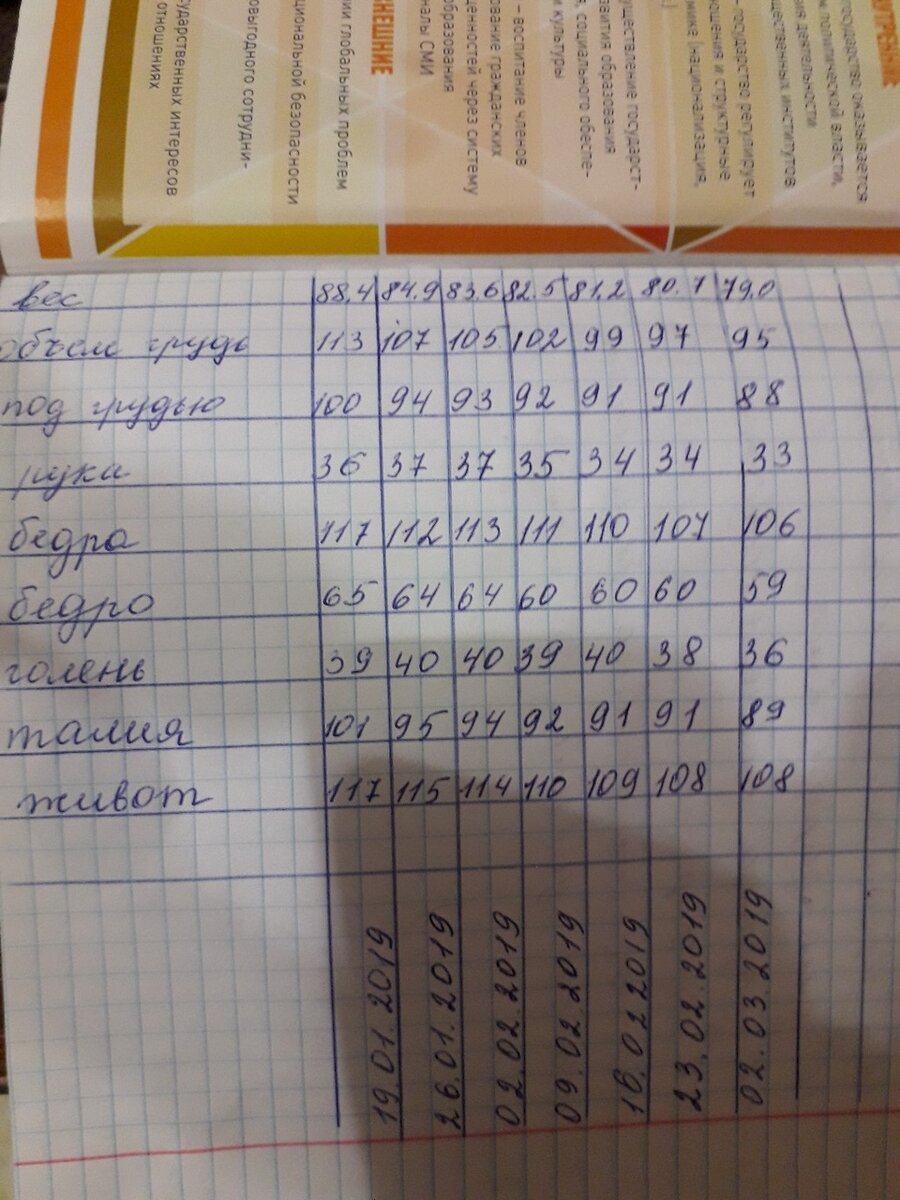 УТРЕННИЕ
государство оказывается
политической власти,
деятельности
институтов
– государство регулирует
и структурные
(национализация,
государст-
образования
социального обеспе-
и культуры
– воспитание членов
гражданских
через систему
СМИ
образования
ВНЕШНИЕ
глобальных проблем
безопасности
сотрудни-
интересов
отношениях
вес 88,4 84,9 83,6 82.5 81,2 80.7 79,0
объем груди 113 107 105 102 99 97 95
под грудью 100 94 93 92 91 91 88
рука 36 37 37 35 34 34 33
бедра 117 112 113 111 110 107 106
бедро 65 64 64 60 60 60 59
голень 39 40 40 39 40 38 36
талия 101 95 94 92 91 91 89
живот 117 115 114 110 109 108 108
19.01.2019 26.01.2019 02.02.2019 09.02.2019 16.02.2019 23.02.2019 02.03.2019